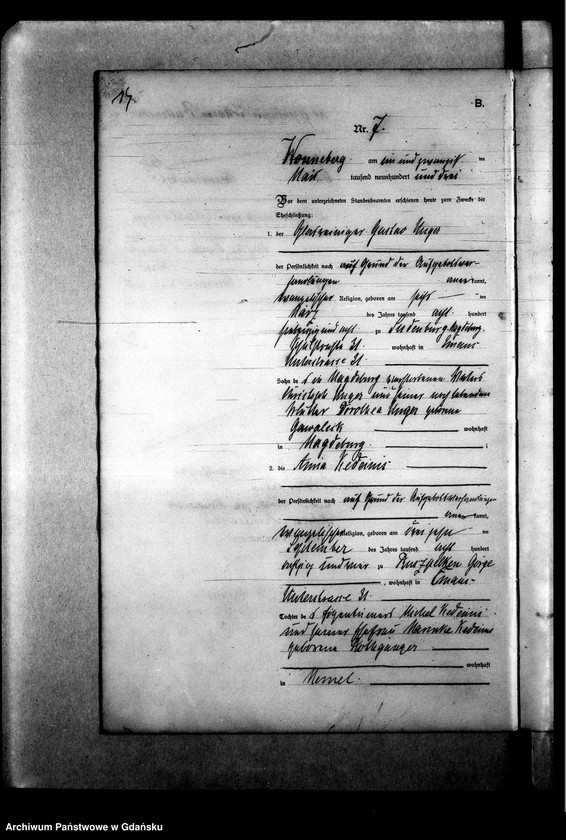 17.
B.
Nr. 7.
Wonneberg am ein und zwanzigs ten
Mais tausend neunhundert und drei
Vor dem unterzeichneten Standesbeamten erschienen heute zum Zwecke der
Eheschließung:
1. der Gustav Unger
der Persönlichkeit nach auf Grund der Aufgebotsver-
handlungen aner kannt,
evangelischer Religion, geboren am sechs ten
März des Jahres tausend acht hundert
und acht zu Sudenburg Magdeburg
31. wohnhaft in Emaus
Unterstrasse 31.
Sohn des in Magdeburg verstorbenen
Christoph Unger und seiner
Dorothea Unger geborene
wohnhaft
in Magdeburg ;
2. die Anna Kedeinis
der Persönlichkeit nach auf Grund der Aufgebotsverhandlungen
aner kannt,
evangelischer Religion, geboren am dreizehn ten
September des Jahres tausend acht hundert
achtzig und vier zu Görge
, wohnhaft in Emaus-
Unterstrasse 31.
Tochter des Eigentümers Michel Kedeinis
und seiner Ehefrau Kedeinis
geborene
wohnhaft
in Memel.
Archiwum Państwowe w Gdańsku